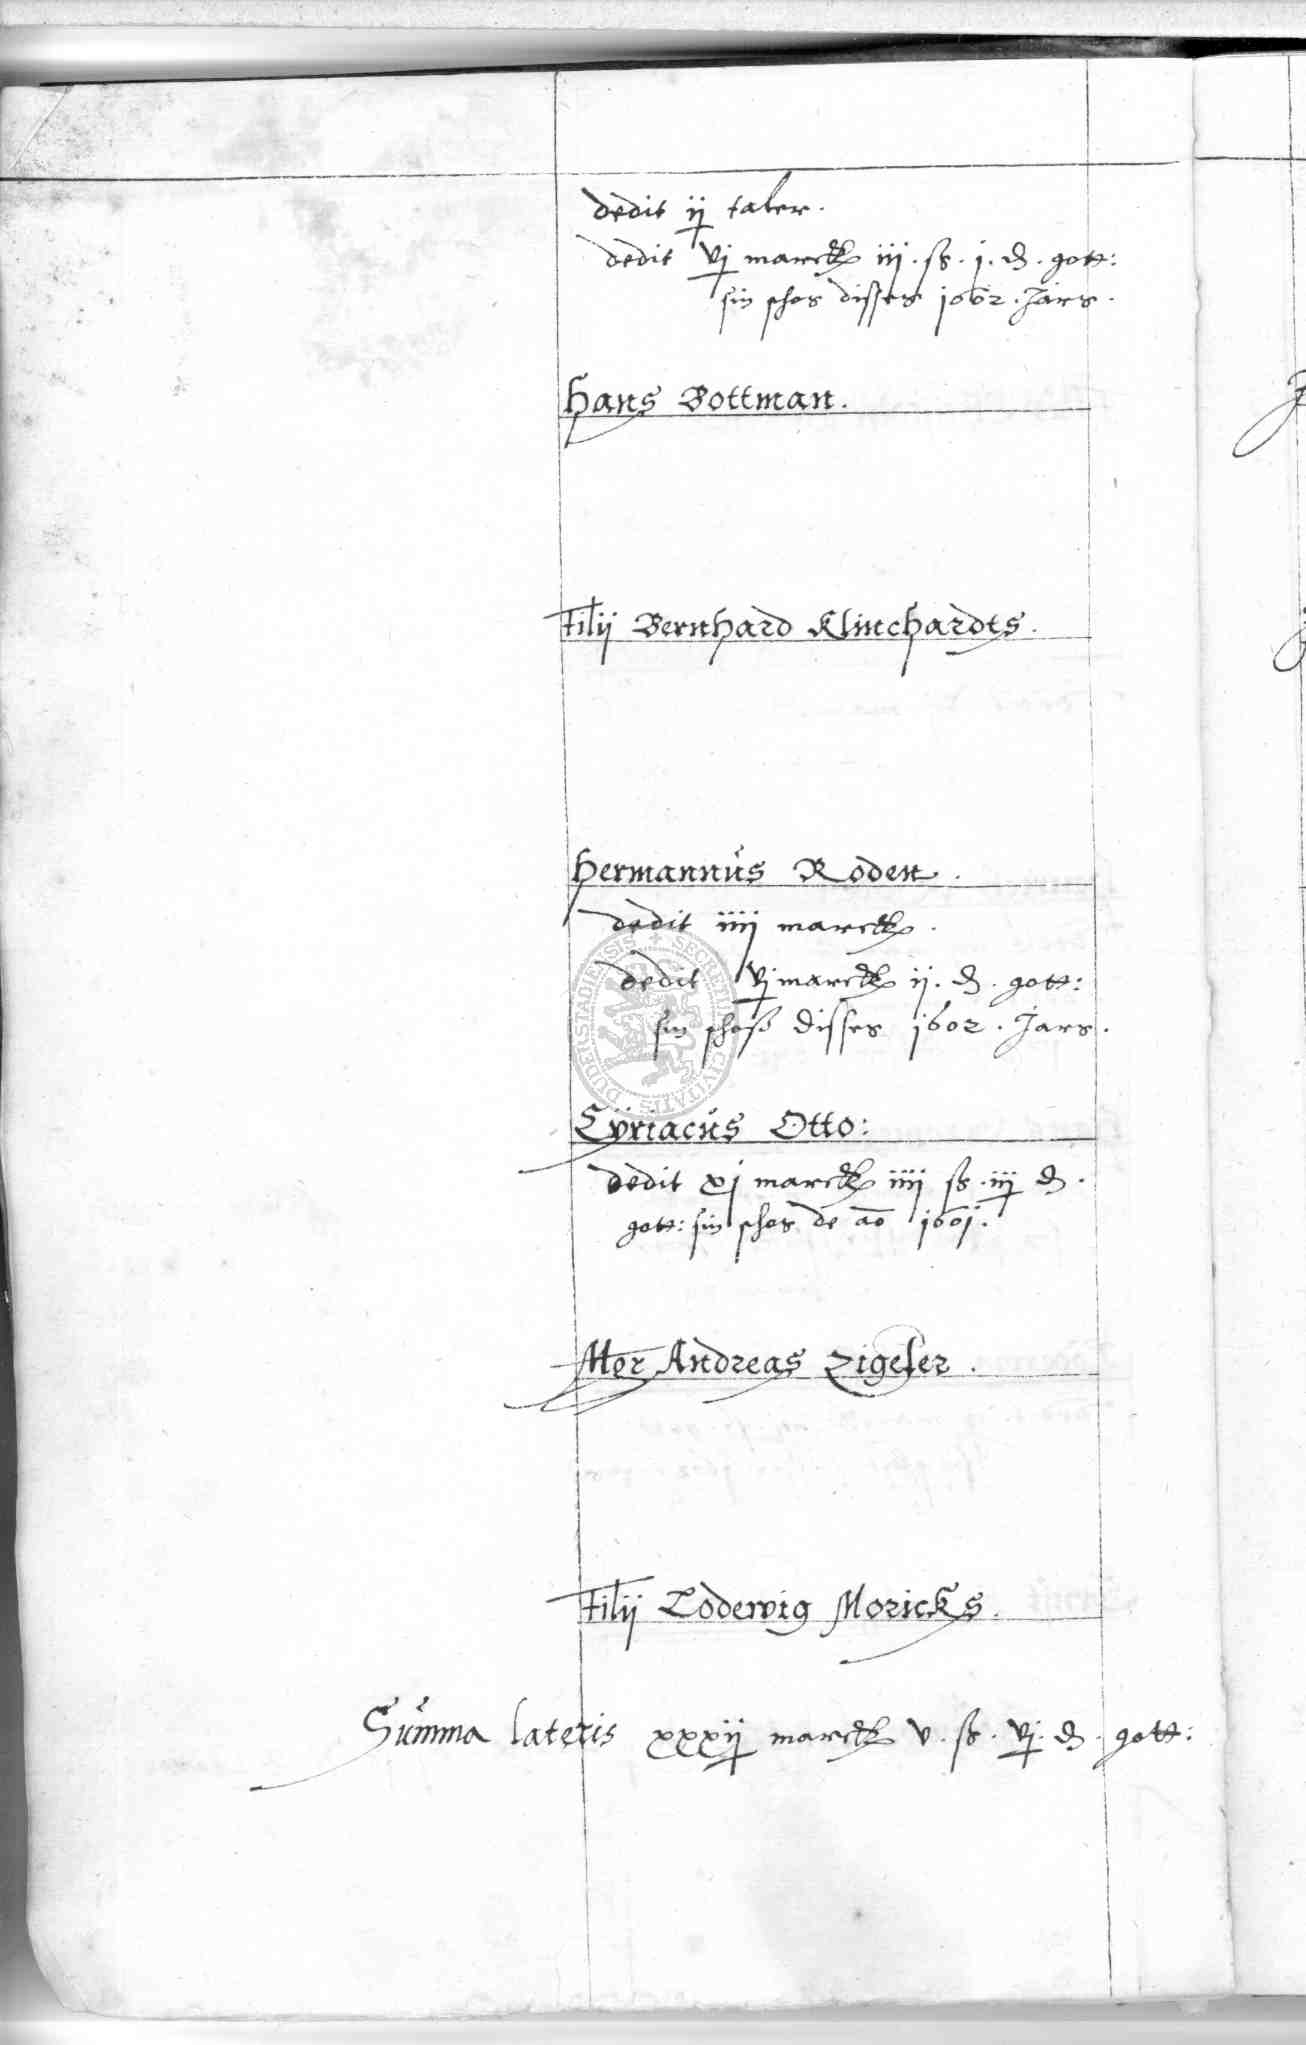 dedit ij taler.
dedit vj marck iij. ß. j. ₰. gott:
sin schos disses 1602. Jars.
Hans Bottman.
Filij Bernhard Klinchardts.
Hermannus Roden.
dedit iiij marck.
dedit vj marck ij. ₰. gott:
sin schoß disses 1602. Jars.
Cyriacus Otto:
dedit xj marck iiij ß. iij ₰.
gott: sin schos de ao 1601.
Mgr Andreas Zigeler.
Filij Lodewig Moricks.
Summa lateris xxxij marck v. ß. vj. ₰. gott:
SECRETUM CIVITATIS DUDERSTADIENSIS